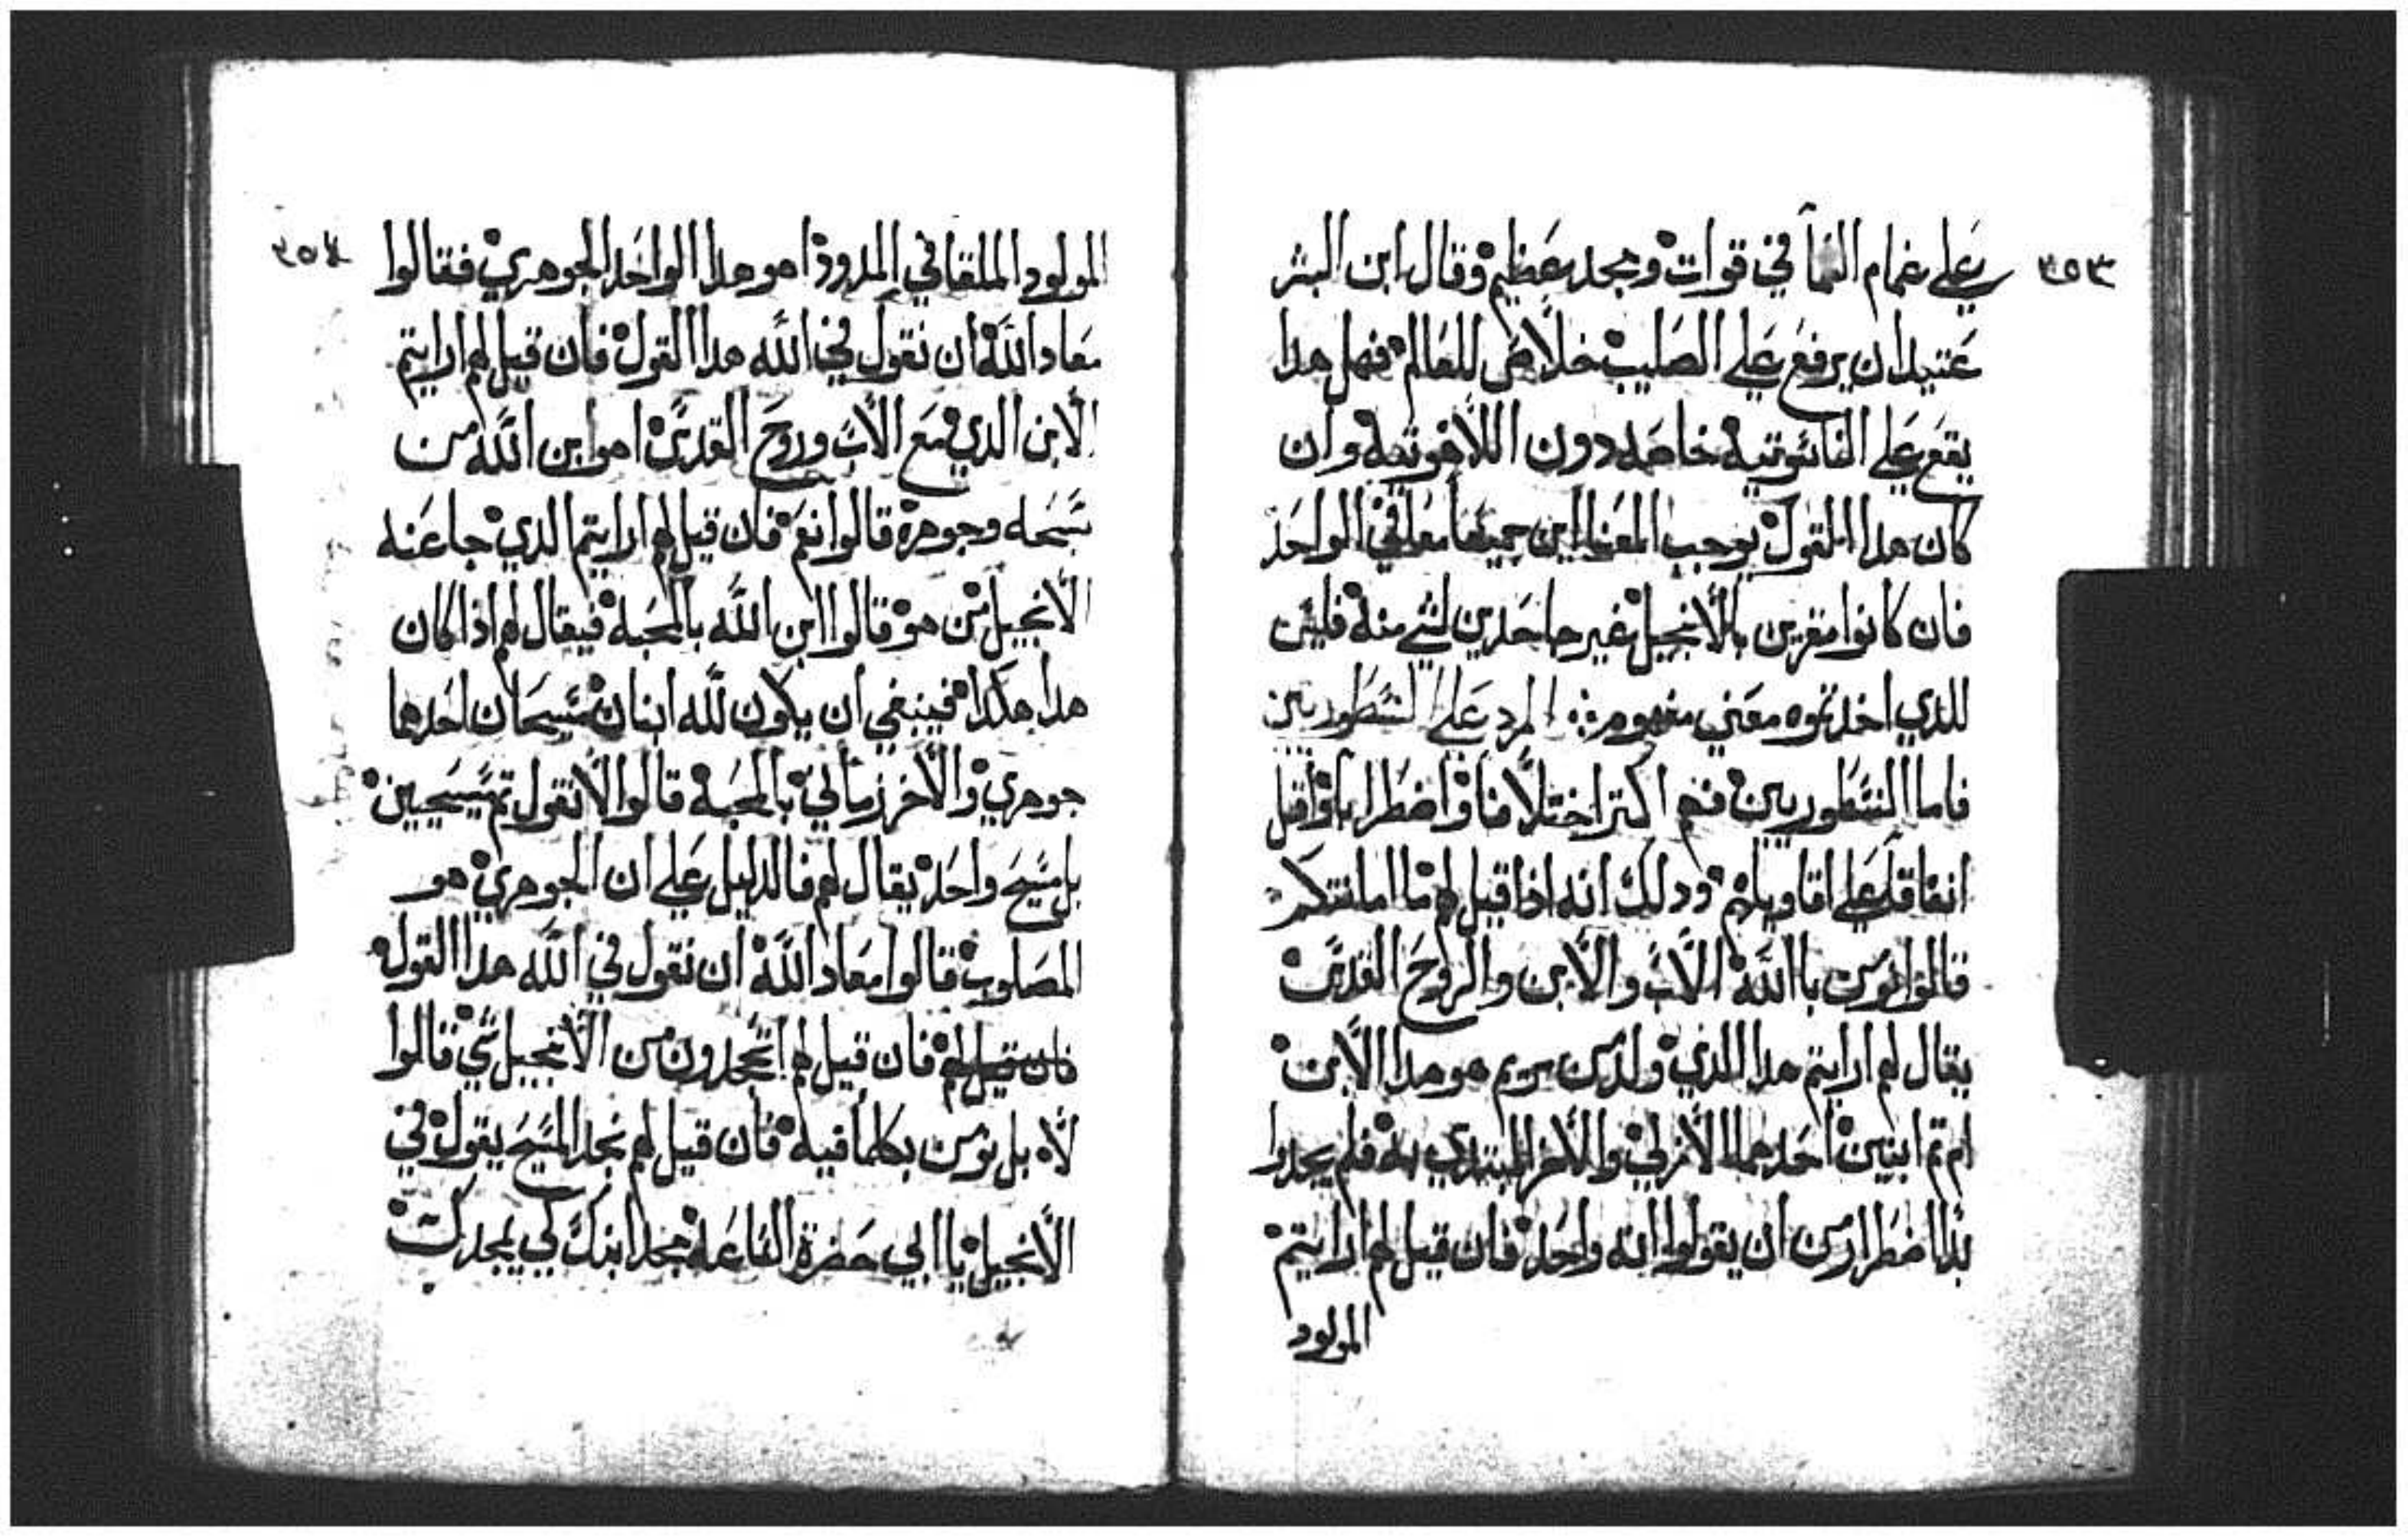 ٣٥٣
علي غمام السما في قوات ومجد عظيم وقال ابن البشر
عتيدان يرفع علي الصليب خلاص للعالم فهل هدا
يقع علي الناسوتيه خاصه دون اللاهوتيه وان
كان هدا القول يوجب المعنايين جميعا معا في الواحد
فان كانوا مقرين بالانجيل غير جاحدين لشي منه فليس
للدي اخدتموه معني مفهوم ܀ الرد علي النسطوريين
فاما النسطوريين فهم اكتر اختلافا واضطرابا واقل
اتفاقا علي اقاويلهم ودلك انه اذا قيل لهم ما امانتكم
قالوا نومن باالله الاب والابن والروح القدس
يقال لهم ارايتم هدا الذي ولد من مريم هو هدا الابن
ام تم ابنين احدهما الازلي والاخر المبتدي به فلم يجدوا
بدا اضطرار من ان يقولوا انه واحد فان قيل لهم ارايتم
المولود
٣٥٤
المولود الملقا في المدود اهو هدا الواحد الجوهري فقالوا
معاد الله ان نقول في الله هدا القول فان قيل لهم ارايتم
الابن الدي مع الاب وروح القدس اهو ابن الله من
سمه وجوهره قالوا نعم فان قيل لهم ارايتم الدي جا عنه
الانجيل من هو قالوا ابن الله بالمحبه فيقال لهم اذا كان
هدا هكدا فينبغي ان يكون لله ابنان مسيحان احدهما
جوهري والاخر زماني بالمحبه قالوا لا نقول تم مسيحيين
بل مسيح واحد يقال لهم فالدليل علي ان الجوهري هو
المصلوب قالوا معاد الله ان نقول في الله هدا القول
فان قيل لهم فان قيل لهم اتجحدون من الانجيل شي قالوا
لا بل نومن بكلما فيه فان قيل لهم نجد المسيح يقول في
الانجيل ياابي حضرة الساعه مجد ابنك كي يمجدك